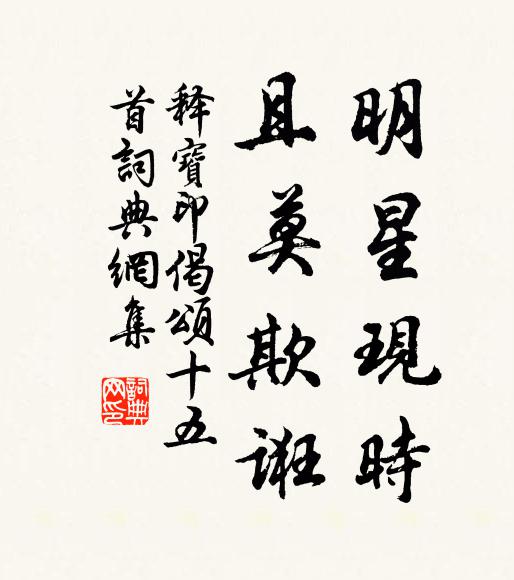 明星現時
且莫欺誑
释寶印偈頌十五
首詞典網集
詞典
网印